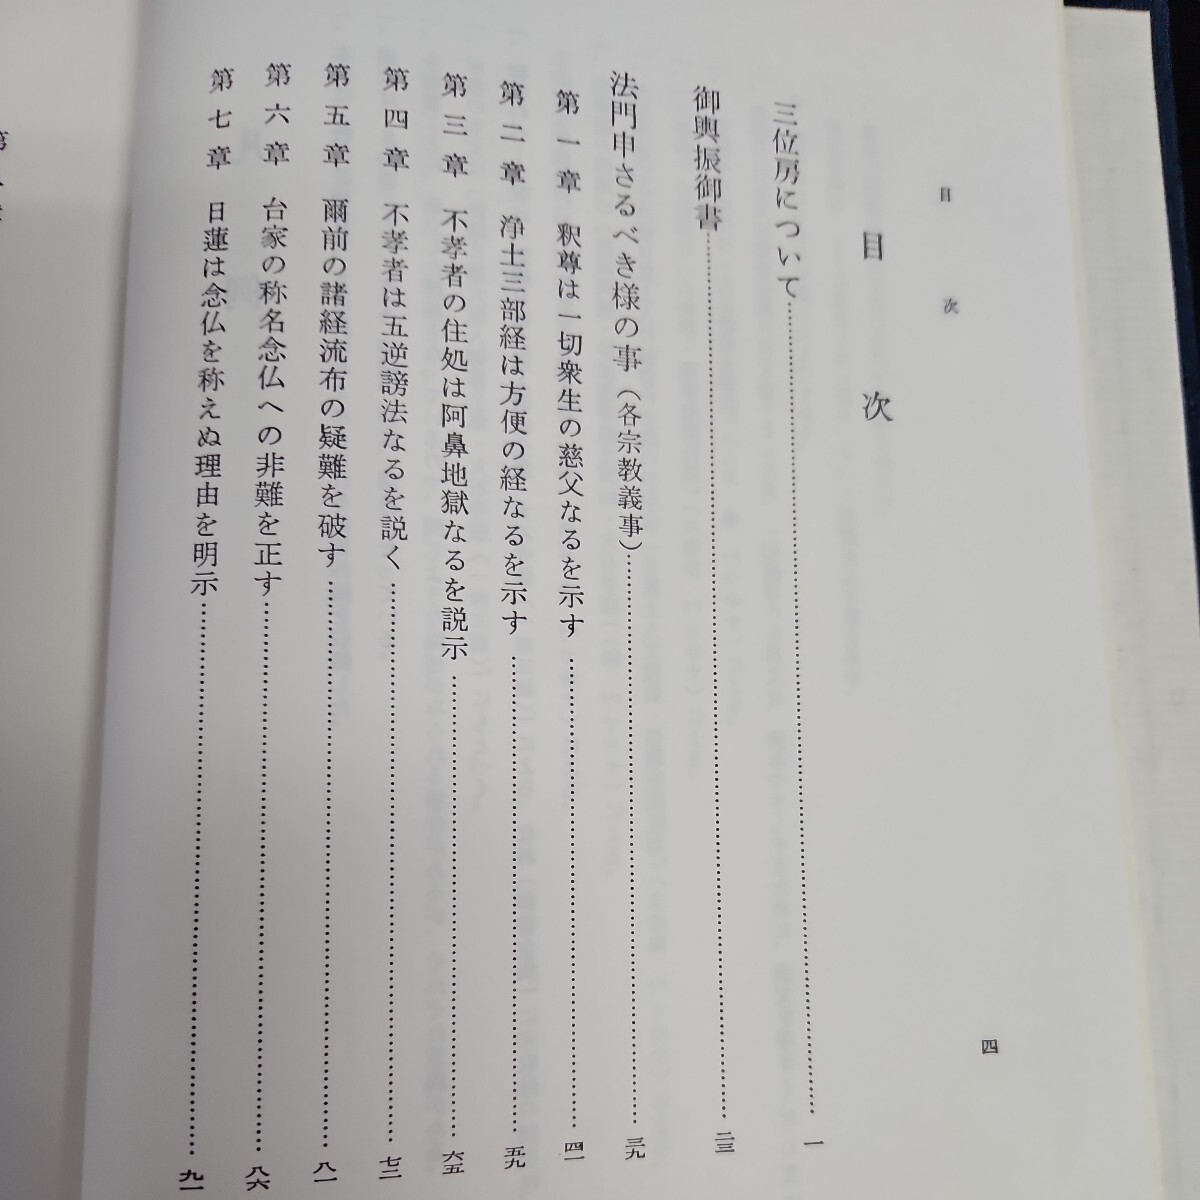 目次
四
目次
三位房について……一
御輿振御書……二三
法門申さるべき様の事（各宗教義事）……三九
第一章 釈尊は一切衆生の慈父なるを示す……四一
第二章 浄土三部経は方便の経なるを示す……五九
第三章 不孝者の住処は阿鼻地獄なるを説示……六五
第四章 不孝者は五逆謗法なるを説く……七二
第五章 爾前の諸経流布の疑難を破す……八一
第六章 台家の称名念仏への非難を正す……八六
第七章 日蓮は念仏を称えぬ理由を明示……九一